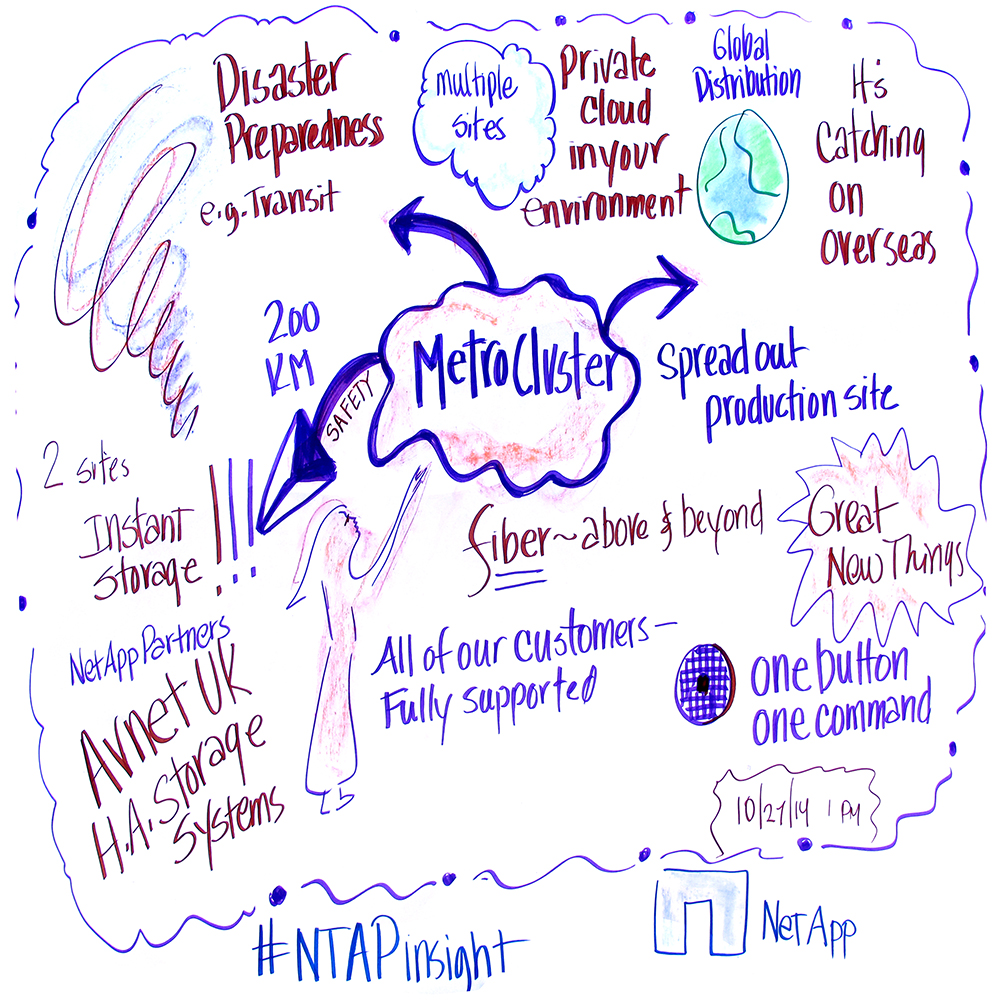 Disaster
Preparedness
e.g. Transit
multiple
sites
Private
cloud
in your
environment
Global
Distribution
It's
Catching
on
overseas
200
KM
SAFETY
MetroCluster
Spread out
production site
2 sites
Instant
storage
!!!
fiber ~ above & beyond
Great
New Things
NetApp Partners
Avnet UK
H.A. Storage
Systems
All of our customers –
Fully supported
one button
one command
10/27/14 1 PM
#NTAPinsight
NetApp